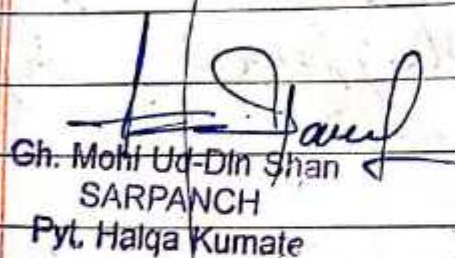 Gh. Mohi Ud-Din Shan
SARPANCH
Pyt. Halqa Kumate